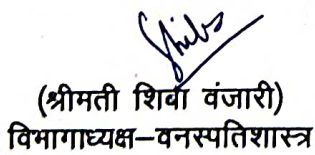 Shiba
(श्रीमती शिबा वंजारी)
विभागाध्यक्ष–वनस्पतिशास्त्र